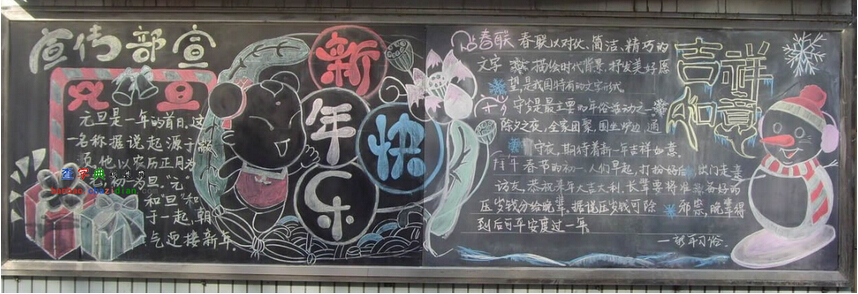 宣传部宣
元旦
元旦是一年的首日,这
一名称据说起源于
他以农历正月为
为旦。"元"
和"旦"和
于一起,朝
气迎接新年。
新
年
快
乐
贴春联 春联以对仗、简洁、精巧的
文字 描绘时代背景,抒发美好愿
望,是我国特有的文学形式
守岁是最主要的年俗活动之一
除夕之夜,全家团聚,围坐炉边 通
守夜,期待着新一年吉祥如意.
拜年 春节的初一人们早起,打扮好后 出门走亲
访友,恭祝来年大吉大利,长辈要将准备好的
压岁钱分给晚辈,据说压岁钱可除 邪祟,晚辈得
到后可平安度过一年。
吉祥
如意